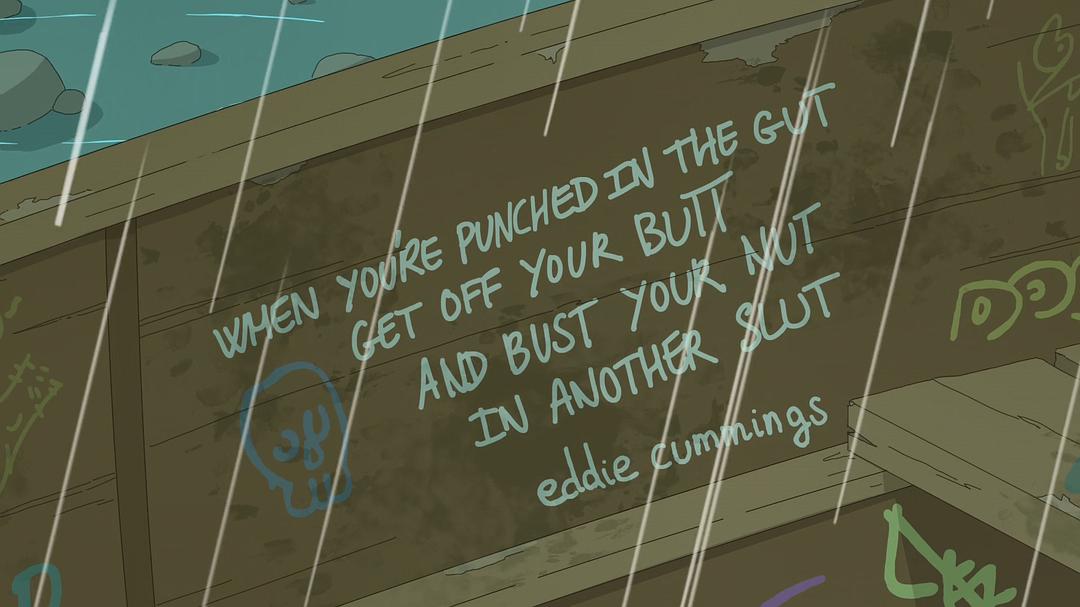 WHEN YOU'RE PUNCHED IN THE GUT
GET OFF YOUR BUTT
AND BUST YOUR NUT
IN ANOTHER SLUT
eddie cummings